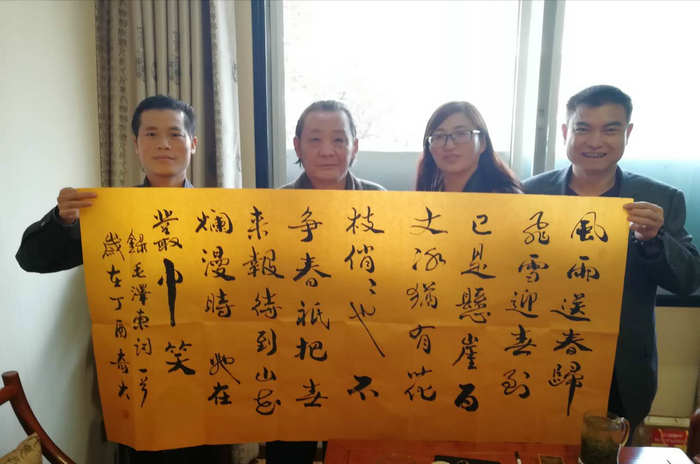 風雨送春歸
飛雪迎春到
已是懸崖百
丈冰猶有花
枝俏〻也不
争春祇把春
来報待到山花
爛漫時她在
叢中笑
錄毛澤東詞一首
歲在丁酉春